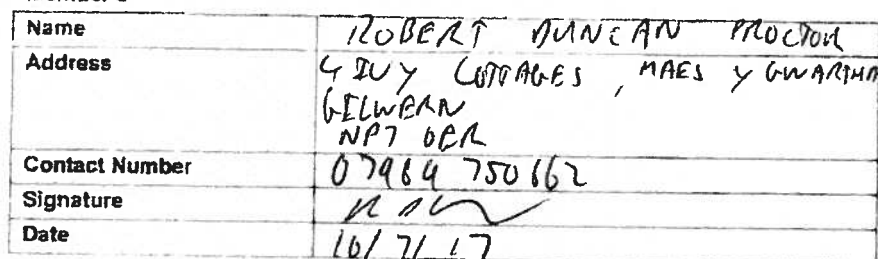 Name ROBERT DUNCAN PROCTOR
Address 4 IVY COTTAGES, MAES Y GWARTHA
GILWERN
NP7 0ER
Contact Number
Signature
Date 10/7/17